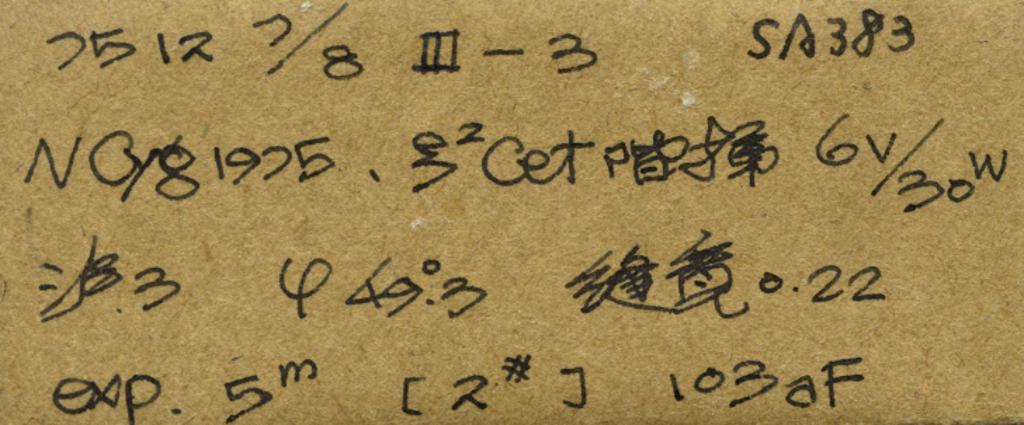 7512 7/8 III-3 SA383
NCyg 1975. ε²Cet 階梯 6V/30W
波.3 φ49°.3 缝宽 0.22
exp. 5ᵐ [2#] 103aF